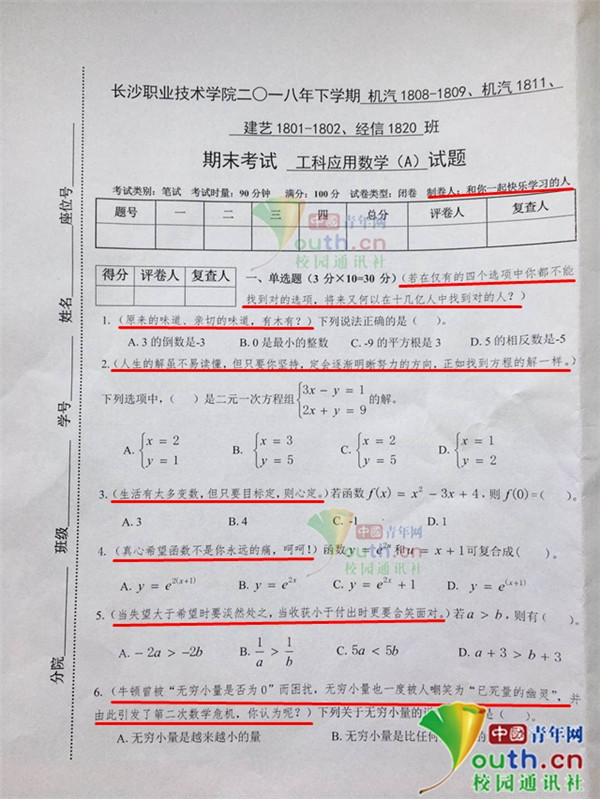 长沙职业技术学院二〇一八年下学期 机汽1808-1809、机汽1811、
建艺1801-1802、经信1820 班
期末考试 工科应用数学(A) 试题
考试类别:笔试 考试时量:90分钟 满分:100分 试卷类型:闭卷 制卷人:和你一起快乐学习的人
题号 一 二 三 四 总分 评卷人 复查人
得分 评卷人 复查人
一、单选题(3分×10=30分)(若在仅有的四个选项中你都不能
找到对的选项,将来又何以在十几亿人中找到对的人?)
1.(原来的味道、亲切的味道,有木有?)下列说法正确的是( )。
A. 3的倒数是-3 B. 0是最小的整数 C. -9的平方根是3 D. 5的相反数是-5
2.(人生的解虽不易读懂,但只要你坚持,定会逐渐明晰努力的方向,正如找到方程的解一样。)
下列选项中,( )是二元一次方程组{3x − y = 1 2x + y = 9 的解。
A.{x = 2 y = 1 B.{x = 3 y = 5 C.{x = 2 y = 5 D.{x = 1 y = 2
3.(生活有太多变数,但只要目标定,则心定。)若函数 f(x) = x² − 3x + 4,则 f(0)=( )。
A. 3 B. 4 C. -1 D. 1
4.(真心希望函数不是你永远的痛,呵呵!)函数 y = e²ᵘ 和 u = x + 1 可复合成( )。
A. y = e²⁽ˣ⁺¹⁾ B. y = e²ˣ C. y = e²ˣ + 1 D. y = e⁽ˣ⁺¹⁾
5.(当失望大于希望时要淡然处之,当收获小于付出时更要含笑面对。)若 a > b,则有( )。
A. − 2a > −2b B. 1/a > 1/b C. 5a < 5b D. a + 3 > b + 3
6.(牛顿曾被“无穷小量是否为0”而困扰,无穷小量也一度被人嘲笑为“已死量的幽灵”,并
由此引发了第二次数学危机,你认为呢?)下列关于无穷小量的 ( )。
A. 无穷小量是越来越小的量 B. 无穷小量是比任何
座位号
姓名
学号
班级
分院
中國青年网
youth.cn
校园通讯社
中國青年网
youth.cn
校园通讯社
中國青年网
youth.cn
校园通讯社